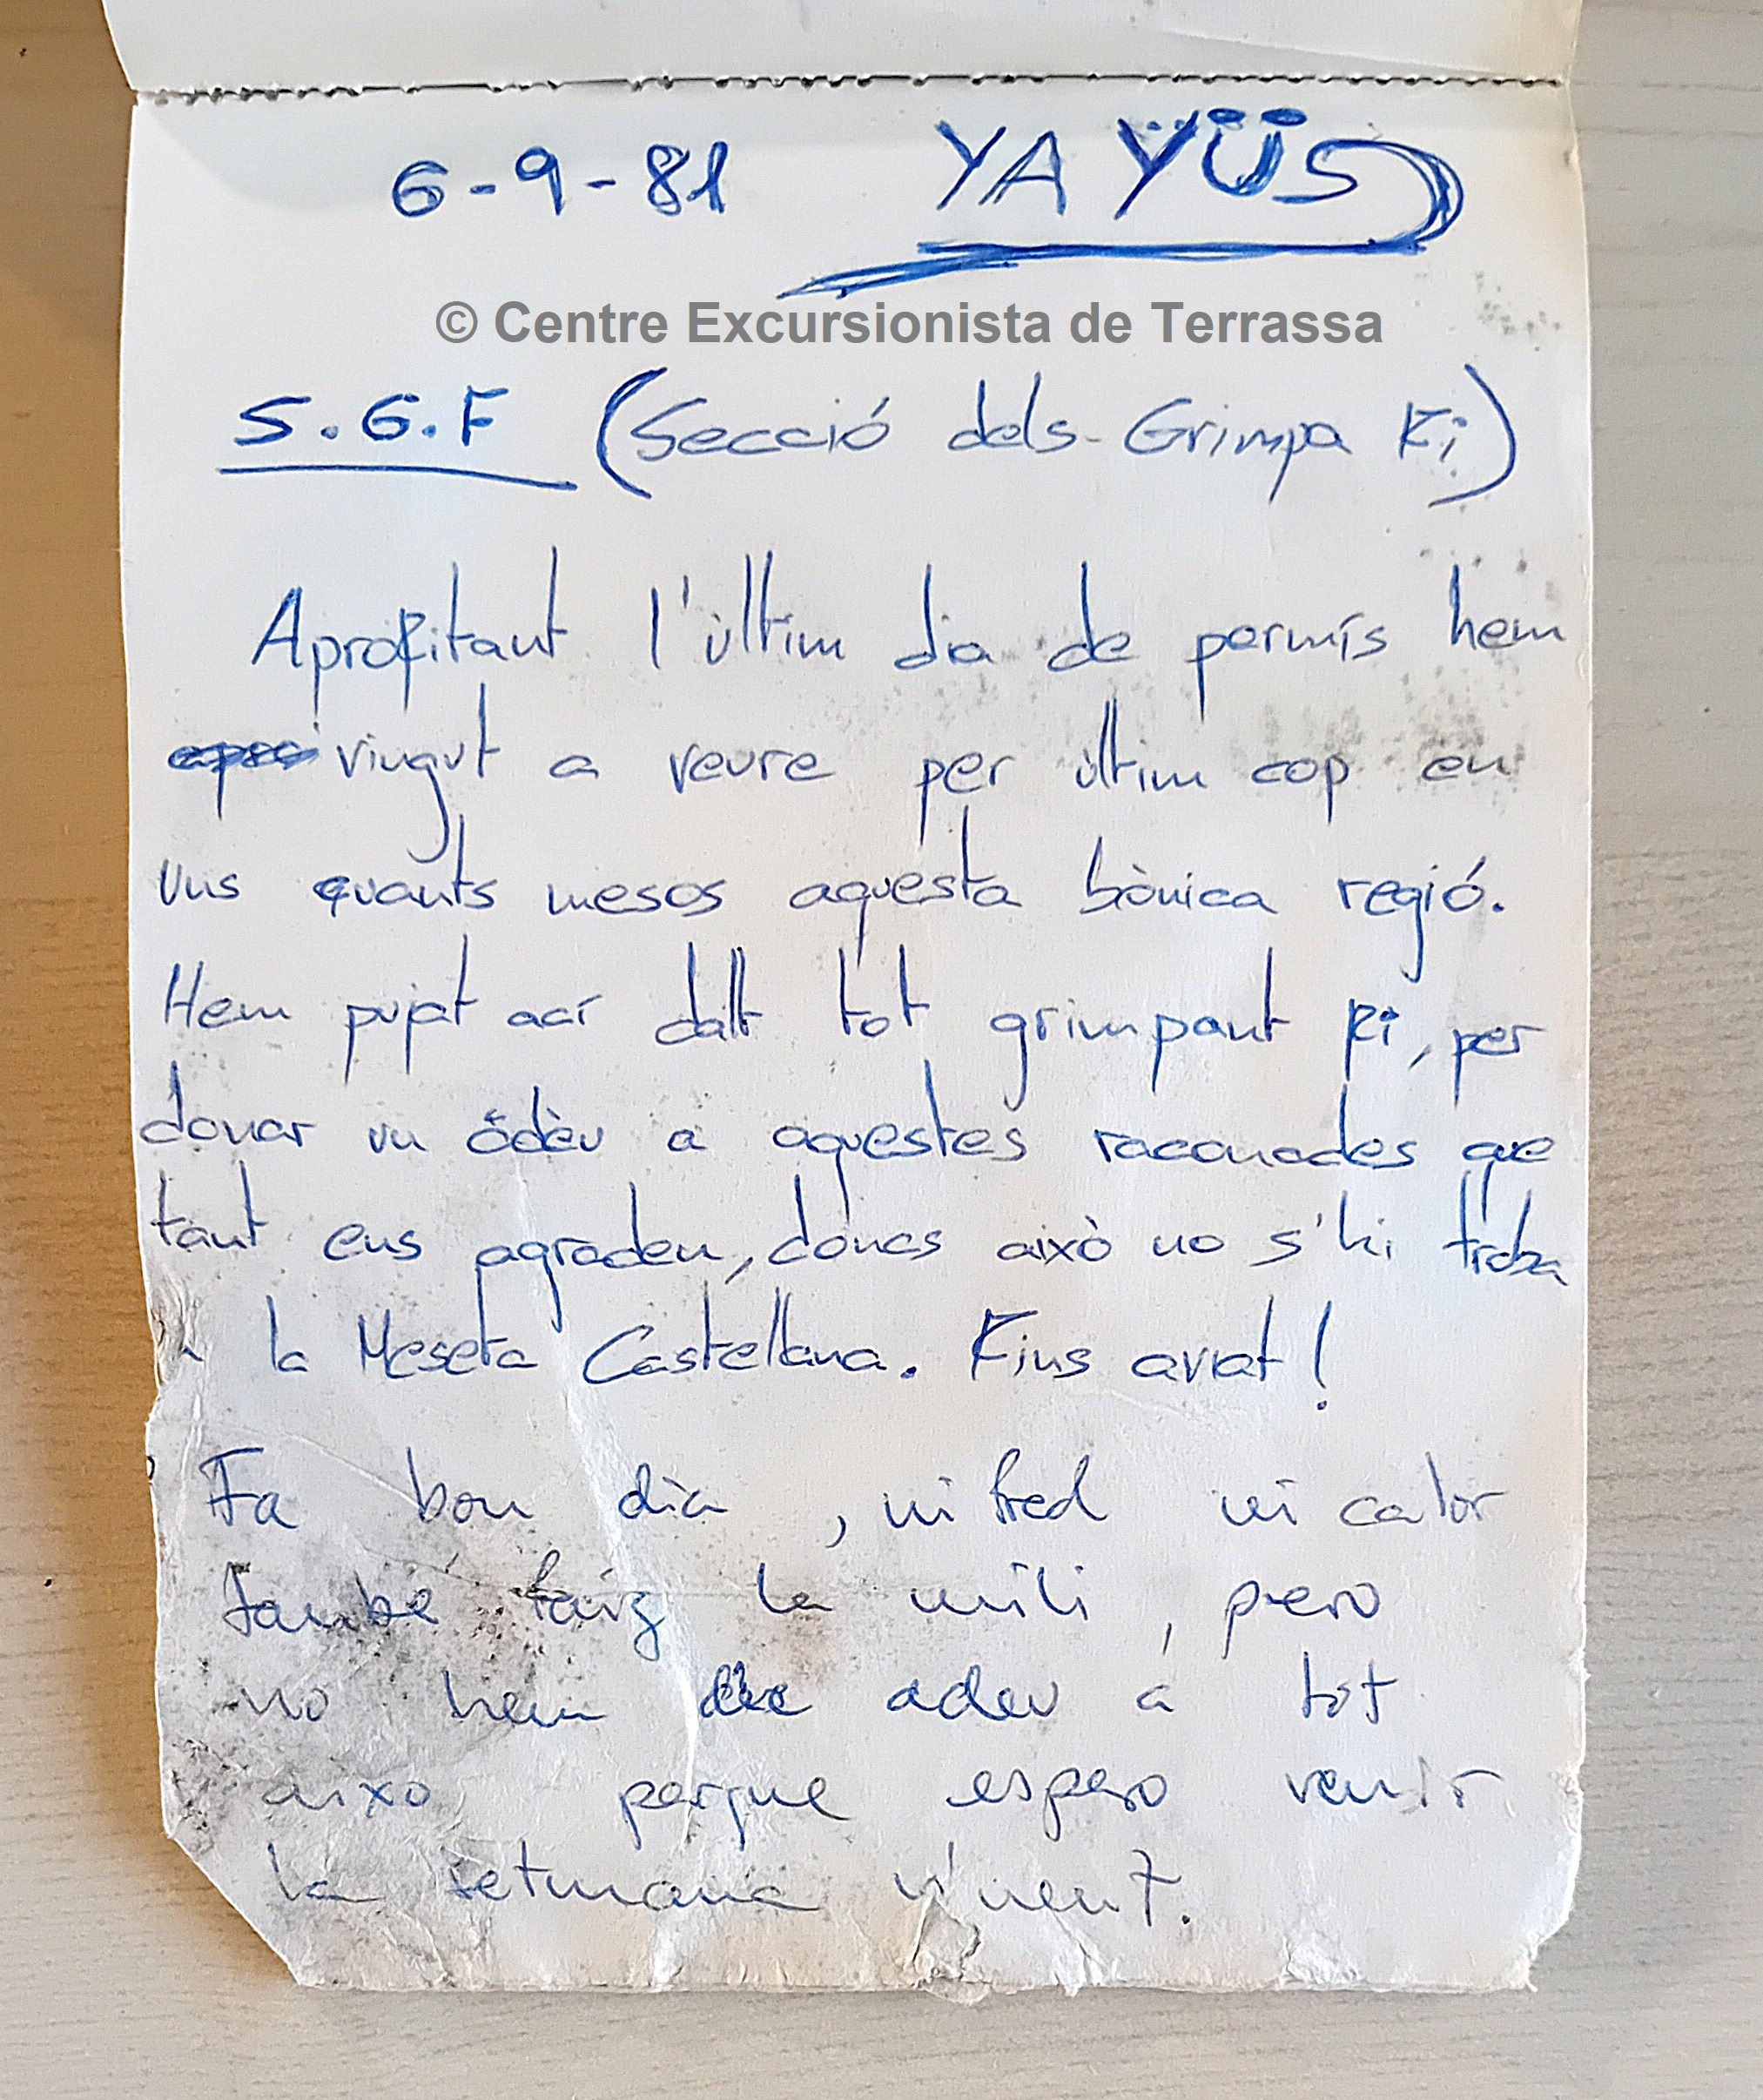 6-9-81 YAŸÜS
© Centre Excursionista de Terrassa
S.G.F (Secció dels Grimpa Ki)
Aprofitant l'últim dia de permís hem
vingut a veure per últim cop en
uns quants mesos aquesta bònica regió.
Hem pujat ací dalt tot grimpant Ki, per
donar un àdèu a aquestes raconades que
tant ens agraden, doncs això no s'hi troba
a la Meseta Castellana. Fins aviat!
Fa bon dia, ni fred ni calor
també faig la mili, pero
no hem adeu a tot
aixo perque espero venir
la setmana vinent.